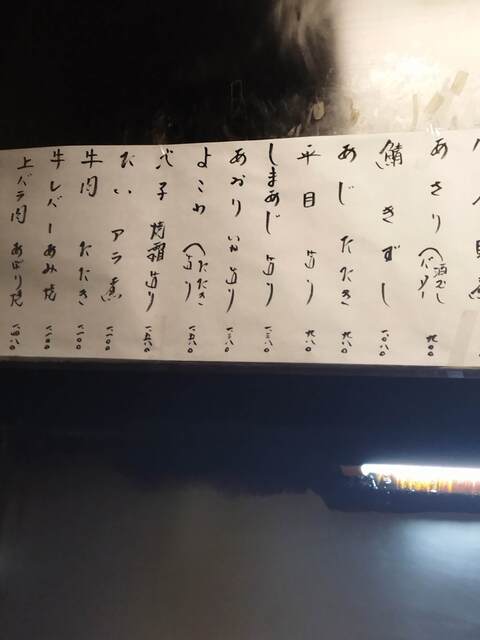 あさり 酒むし バター 九〇〇
鯖 きずし 一〇八〇
あじ たたき 九八〇
平目 造り 九八〇
しまあじ 造り 一三八〇
あおり いか 造り 一三八〇
よこわ たたき 造り 一五八〇
穴子 焼霜 造り 一五八〇
たい アラ煮 一一〇〇
牛肉 たたき 一一〇〇
牛レバーあみ焼 一一〇〇
上バラ肉 あぶり焼 一四八〇